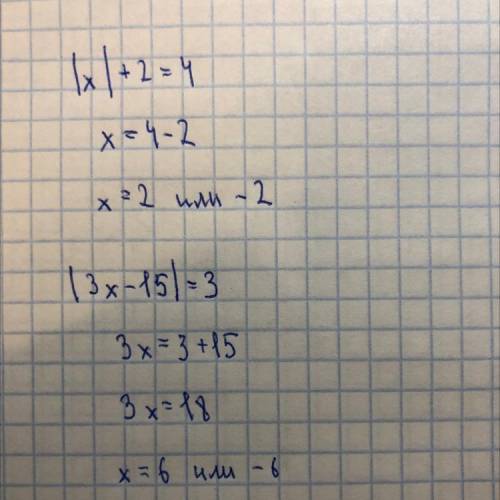 |x| + 2 = 4
x = 4 - 2
x = 2 или - 2
|3x - 15| = 3
3x = 3 + 15
3x = 18
x = 6 или - 6